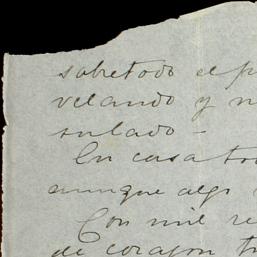 sobretodo el p
velando y n
sulado -
En casa to
aunque algo
Con mil re
de corazon tu